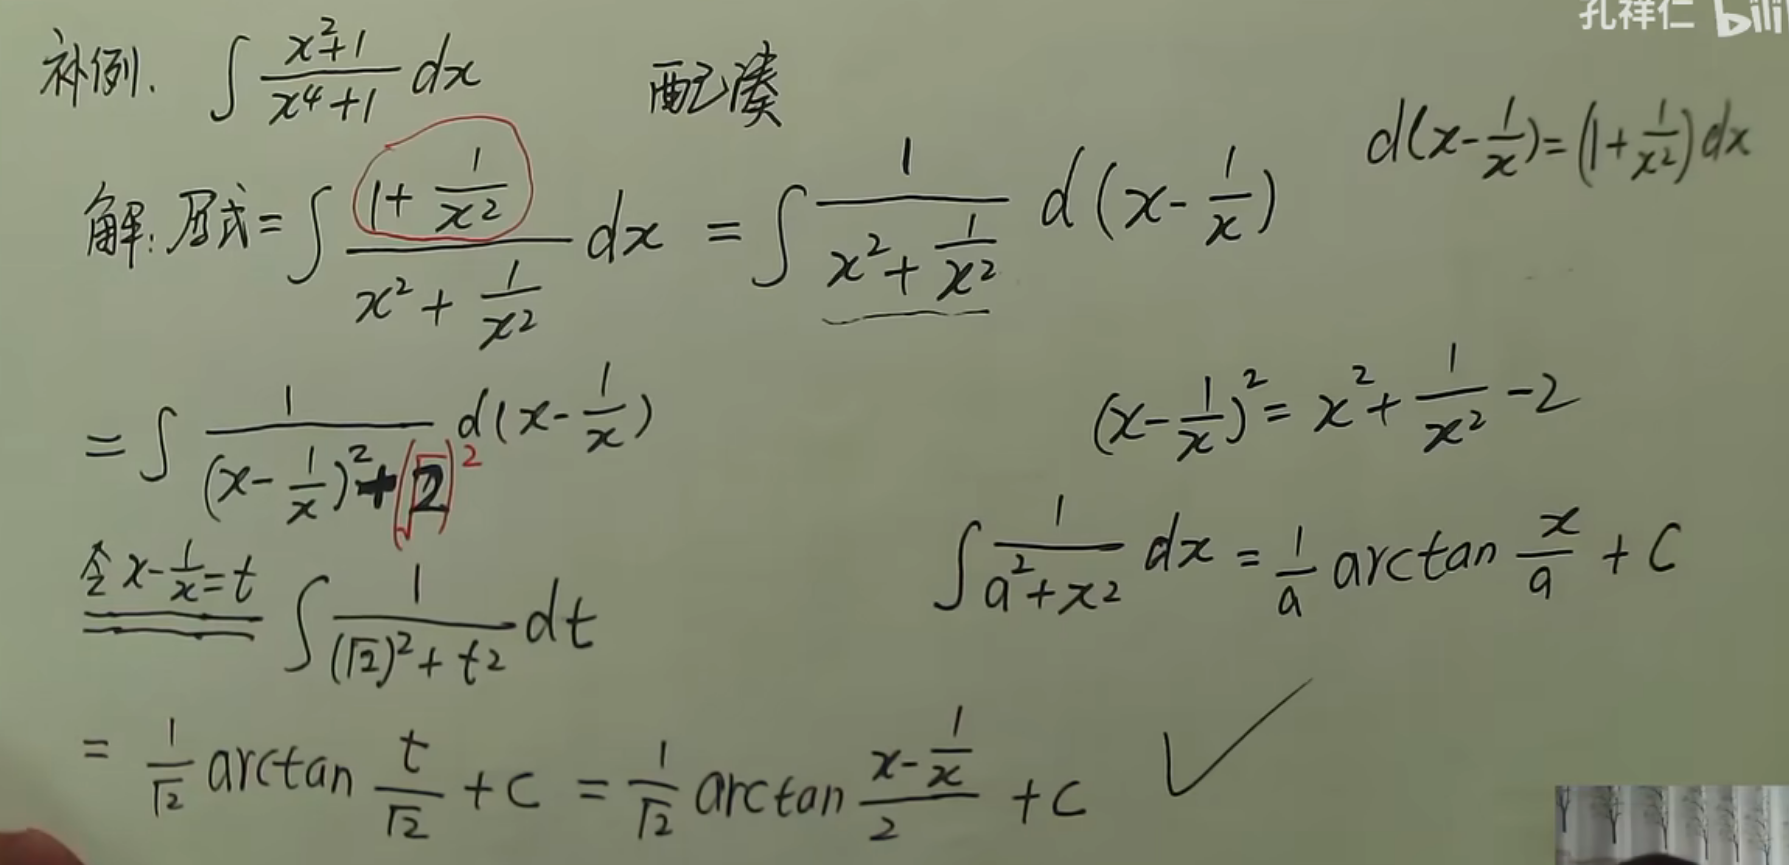 孔祥仁 bili
补例. ∫ (x²+1)/(x⁴+1) dx 配凑
d(x-1/x)=(1+1/x²)dx
解:原式=∫ (1+1/x²)/(x²+1/x²) dx = ∫ 1/(x²+1/x²) d(x-1/x)
=∫ 1/((x-1/x)²+(√2)²) d(x-1/x)
(x-1/x)²=x²+1/x²-2
∫ 1/(a²+x²) dx = 1/a arctan x/a + C
令x-1/x=t ∫ 1/((√2)²+t²) dt
= 1/√2 arctan t/√2 + C = 1/√2 arctan (x-1/x)/2 + C ✓